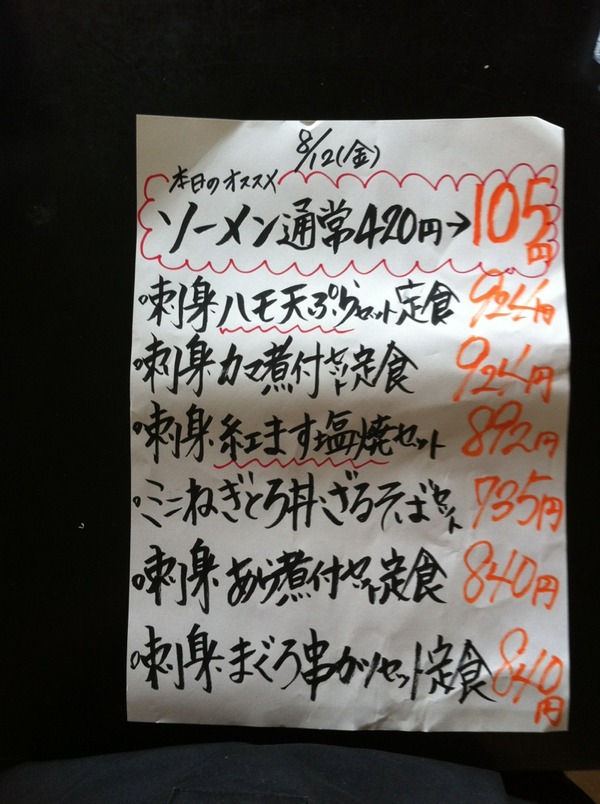 8/12(金)
本日のオススメ
ソーメン通常420円→105円
。刺身ハモ天ぷらセット定食 924円
。刺身カマ煮付セット定食 924円
。刺身紅ます塩焼セット 892円
。ミニねぎとろ丼ざるそばセット 735円
。刺身あら煮付セット定食 840円
。刺身まぐろ串カツセット定食 840円